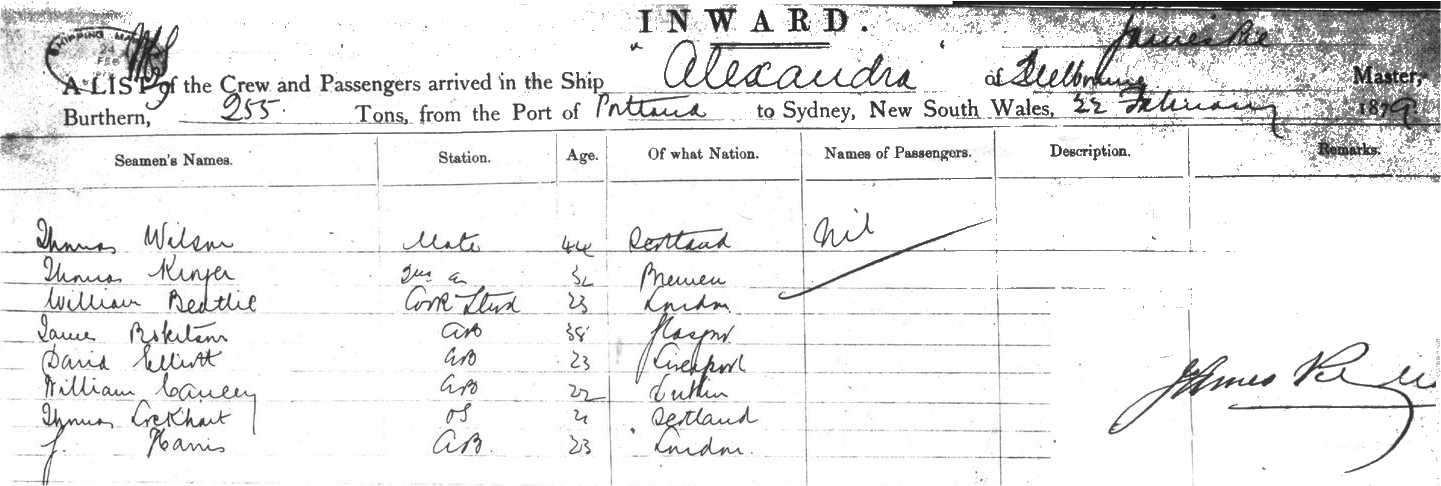 INWARD.
SHIPPING MA
24
FEB
James
A LIST of the Crew and Passengers arrived in the Ship "Alexandra" of Melbourne Master,
Burthern, 255. Tons, from the Port of Portland to Sydney, New South Wales, 22 February 1879
Seamen's Names. Station. Age. Of what Nation. Names of Passengers. Description. Remarks.
Thomas Wilson Mate 44 Scotland Nil
Thomas 32 Bremen
William Beattie Cook Stwd 23 London
James AB 38 Glasgow
David Elliott AB 23 Liverpool
William AB 22 Dublin
Thomas Lockhart OS 21 Scotland
J. Harris AB. 23 London.
James